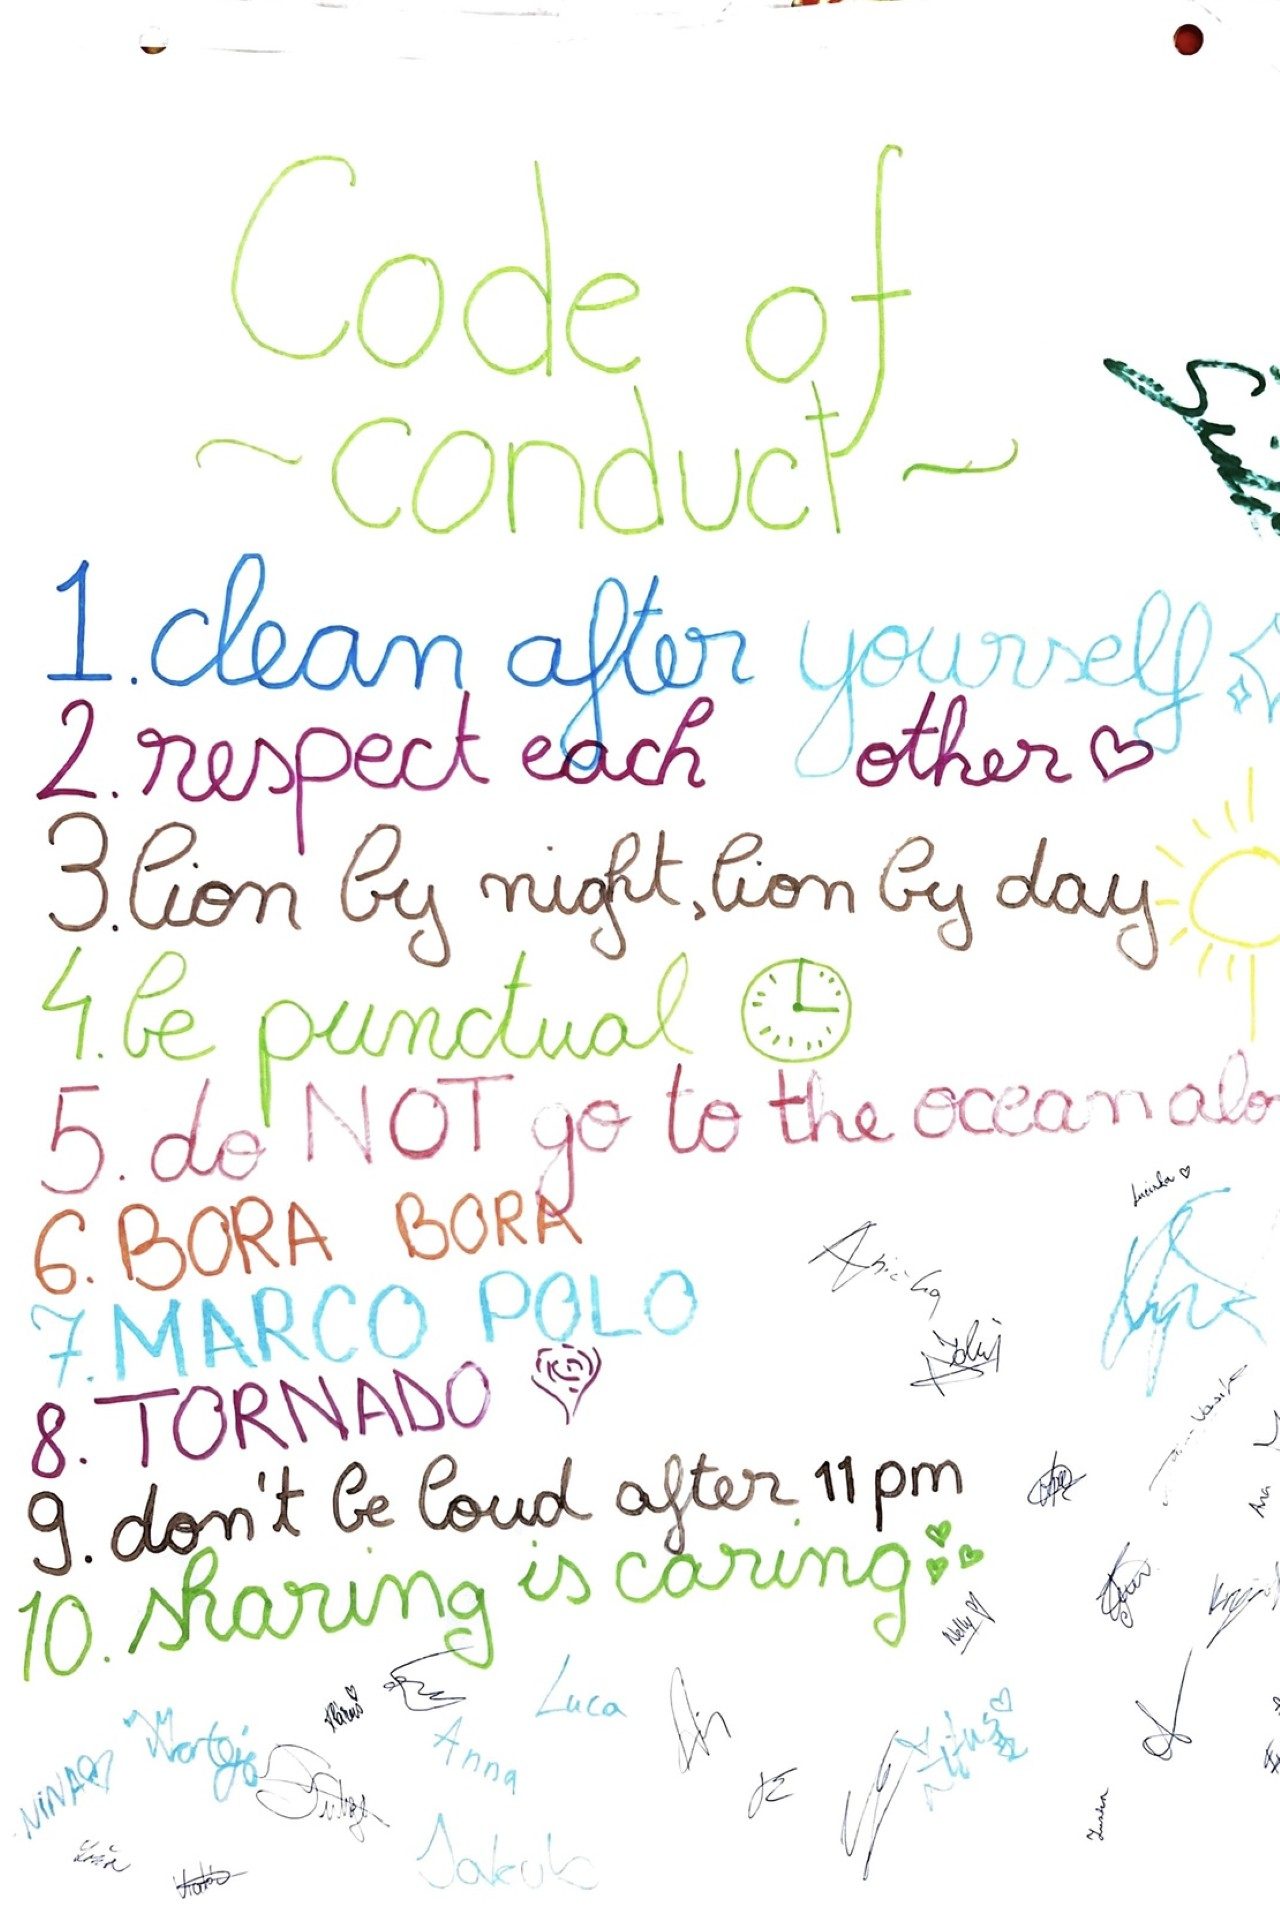 Code of
~conduct~
1. clean after yourself
2. respect each other♡
3. lion by night, lion by day
4. be punctual
5. do NOT go to the ocean alo
6. BORA BORA
7. MARCO POLO
8. TORNADO
9. don't be loud after 11 pm
10. sharing is caring
Nelly ♡
Luca
Anna
NINA♡
Mateja
Jakub
Ana